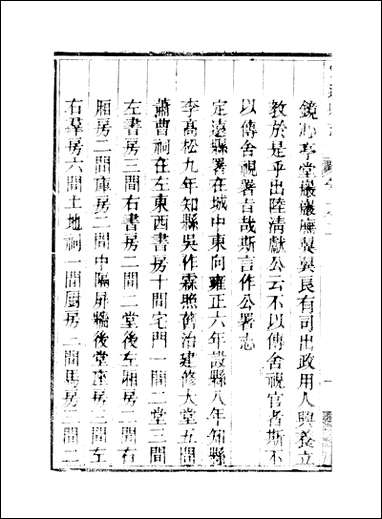 鏡冰亭堂巖巖廡翼翼良有司出政用人興養立
教於是乎出陸清獻公云不以傳舍視官者斯不
以傳舍視署旨哉斯言作公署志
定遠縣署在城中東向雍正六年設縣八年知縣
李高松九年知縣吳作霖照舊治建修大堂五間
蕭曹祠在左東西書房十間宅門一間二堂三間
左書房三間右書房二間二堂後左厢房二間右
厢房二間庫房二間中隔屏牆後堂座房三間左
右羣房六間土地祠一間厨房二間馬房二間二